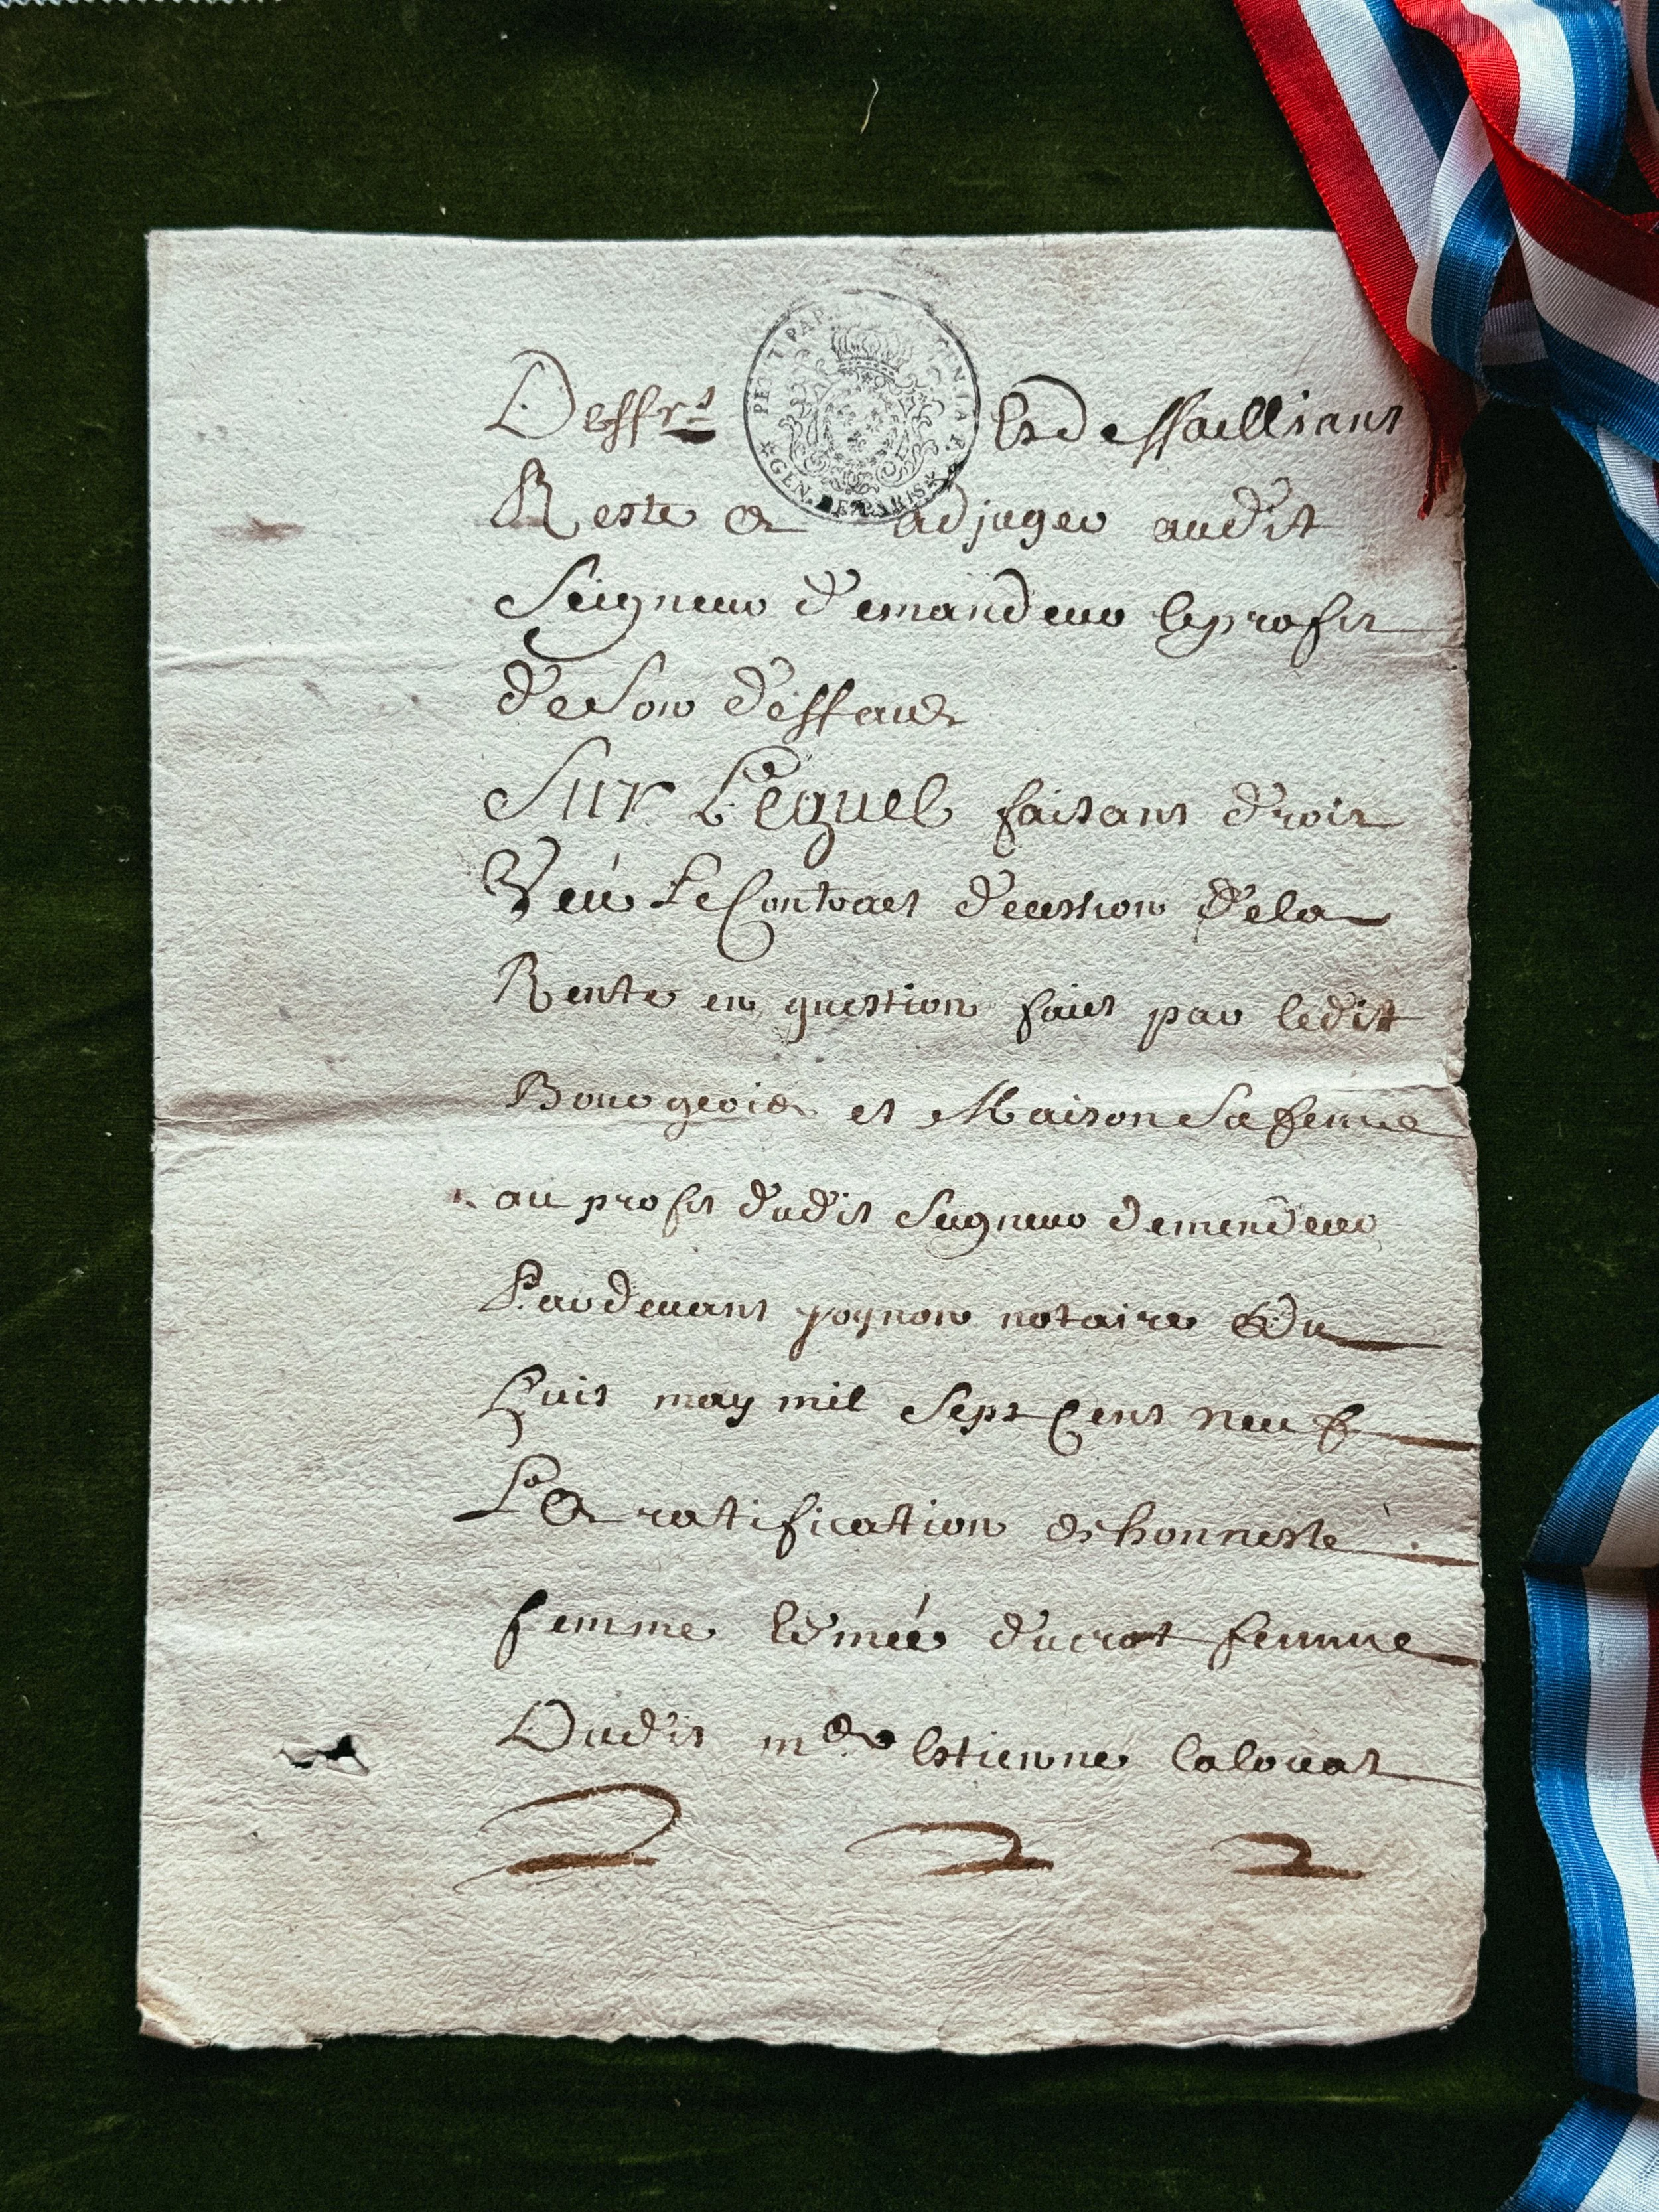 PETIT PAP
GEN. DE PARIS
Deffrs Es deffaillians
Reste & adjuger audit
Seigneur demandeur le profit
de son deffaut
Sur Lequel faisant droit
Veü Le Contract de cession de la
Rente en question fait par ledit
Bourgeois et Maison sa femme
au profit dudit Seigneur demendeur
Pardevant notaire Du
huit may mil sept Cent neuf
La ratification de honneste
femme Edmeé ducrot femme
Dudit me Estienne